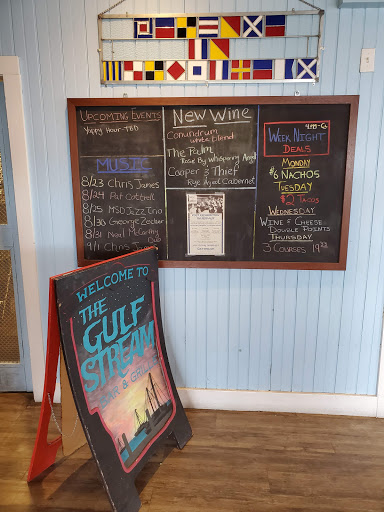 UPCOMING EVENTS
Yappy Hour-TBD
MUSIC
8/23 Chris James
8/24 Pat Cottrell
8/25 MSD Jazz Trio
8/30 George Zecher
8/31 Neal McCarthy
Duo
9/1 Chris James
NEW WINE
Conundrum
white blend
The Palm
Rosé By Whispering Angel
Cooper & Thief
Rye Aged Cabernet
WEEK NIGHT
DEALS
MONDAY
$6 NACHOS
TUESDAY
$2 TACOS
WEDNESDAY
WINE & CHEESE
DOUBLE POINTS
THURSDAY
3 COURSES 19.99
WELCOME TO
THE
GULF
STREAM
BAR & GRILL